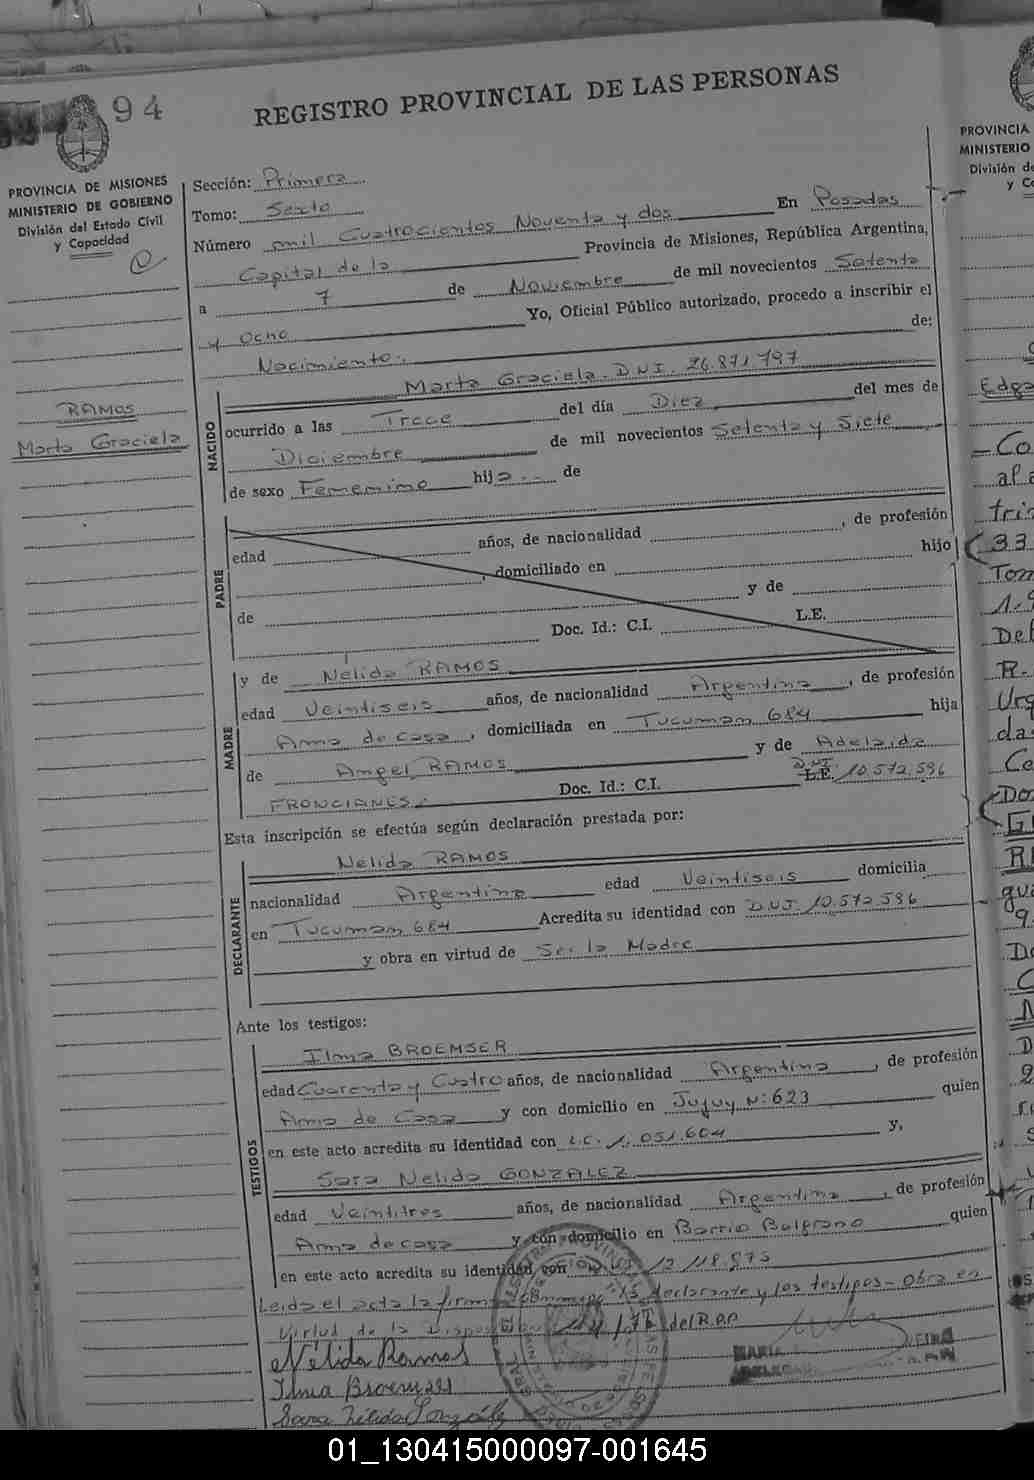 94
REGISTRO PROVINCIAL DE LAS PERSONAS
PROVINCIA DE MISIONES
MINISTERIO DE GOBIERNO
División del Estado Civil
y Capacidad
RAMOS
Marta Graciela
Sección: Primera
Tomo: Sexto
Número mil Cuatrocientos Noventa y dos En Posadas
Capital de la Provincia de Misiones, República Argentina,
a 7 de Noviembre de mil novecientos Setenta
y Ocho Yo, Oficial Público autorizado, procedo a inscribir el
Nacimiento.- de:
NACIDO
Marta Graciela. D.N.I. 26.871.797
ocurrido a las Trece del día Diez del mes de
Diciembre de mil novecientos Setenta y Siete
de sexo Femenino hija de
PADRE
edad años, de nacionalidad , de profesión
, domiciliado en hijo
de y de
Doc. Id.: C.I. L.E.
MADRE
y de Nelida RAMOS
edad Veintiseis años, de nacionalidad Argentina, de profesión
Ama de casa, domiciliada en Tucuman 684 hija
de Angel RAMOS y de Adelaida
FRONCIANES.- Doc. Id.: C.I. L.E. D.N.I. 10.572.596
Esta inscripción se efectúa según declaración prestada por:
DECLARANTE
Nelida RAMOS
nacionalidad Argentina edad Veintiseis domicilia
en Tucuman 684 Acredita su identidad con D.N.I. 10.572.596
y obra en virtud de Ser la Madre
Ante los testigos:
TESTIGOS
Ilma BROEMSER
edad Cuarenta y Cuatro años, de nacionalidad Argentina, de profesión
Ama de Casa y con domicilio en Jujuy N: 623 quien
en este acto acredita su identidad con L.C. 1.051.604 y,
Sara Nelida GONZALEZ
edad Veintitres años, de nacionalidad Argentina, de profesión
Ama de casa y con domicilio en Barrio Belgrano quien
en este acto acredita su identidad con 12.118.973
Leida el acta la firman la declarante y los testigos - Obra en
Virtud de la Disposición del R.P.P.
Nélida Ramos
Ilma Broemser
Sara Nélida González
PROVINCIA
MINISTERIO
División de
01_130415000097-001645